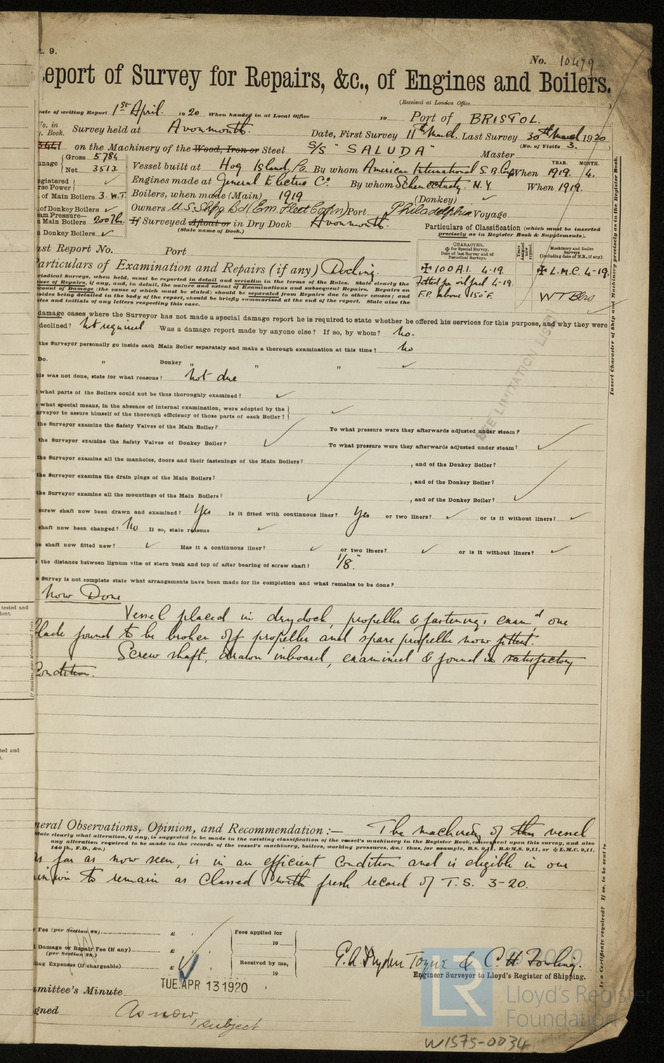 t. 9.
No. 10479
eport of Survey for Repairs, &c., of Engines and Boilers.
(Received at London Office
ate of writing Report 1st April 1920 When handed in at Local Office 19 Port of BRISTOL.
o. in Book. Survey held at Avonmouth. Date, First Survey 11th March. Last Survey 30th March 1920
(No. of Visits 3.)
on the Machinery of the Wood, Iron or Steel S/S "SALUDA" Master
Gross 5784
Net 3513
Vessel built at Hog Island, Pa. By whom American International S.B. When 1919. 4.
YEAR. MONTH.
Engines made at General Electric Co By whom Schenectady. N.Y. When 1919.
of Main Boilers 3 W.T. Boilers, when made (Main) 1919 (Donkey)
Owners Port Philadelphia Voyage
n Main Boilers 200 lb. If Surveyed Afloat or in Dry Dock Avonmouth.
(State name of Dock.)
n Donkey Boilers
Particulars of Classification (which must be inserted precisely as in Register Book & Supplements).
ast Report No. Port
articulars of Examination and Repairs (if any) Docking.
✠100A1. 4-19. ✠L.M.C. 4-19.
Fitted for oil fuel 4-19.
F.P. above 150°F. WT Blrs
damage cases where the Surveyor has not made a special damage report he is required to state whether he offered his services for this purpose, and why they were
declined? Not required Was a damage report made by anyone else? If so, by whom? No.
the Surveyor personally go inside each Main Boiler separately and make a thorough examination at this time? No
Do. Donkey " " " "
is was not done, state for what reasons? Not due
what parts of the Boilers could not be thus thoroughly examined?
what special means, in the absence of internal examination, were adopted by the
rveyor to assure himself of the thorough efficiency of those parts of each Boiler?
the Surveyor examine the Safety Valves of the Main Boiler? To what pressure were they afterwards adjusted under steam?
the Surveyor examine the Safety Valves of Donkey Boiler? To what pressure were they afterwards adjusted under steam?
the Surveyor examine all the manholes, doors and their fastenings of the Main Boilers? , and of the Donkey Boiler?
the Surveyor examine the drain plugs of the Main Boilers? , and of the Donkey Boiler?
the Surveyor examine all the mountings of the Main Boilers? , and of the Donkey Boiler?
screw shaft now been drawn and examined? Yes Is it fitted with continuous liner? Yes or two liners? or is it without liners?
shaft now been changed? No If so, state reasons
e shaft now fitted new? Has it a continuous liner? or two liners? or is it without liners?
the distance between lignum vitæ of stern bush and top of after bearing of screw shaft? 1/8"
e Survey is not complete state what arrangements have been made for its completion and what remains to be done?
Now Done
Vessel placed in drydock, propeller & fastenings exam'd one
blade found to be broken off propeller and spare propeller now fitted.
Screw shaft, drawn inboard, examined & found in satisfactory
condition.
neral Observations, Opinion, and Recommendation :— The machinery of this vessel
s far as now seen, is in an efficient condition and is eligible in our
opinion to remain as classed with fresh record of T.S. 3-20.
y Fee (per Section 28) £ Fees applied for
19
l Damage or Repair Fee (if any) £
(per Section 28.)
ling Expenses (if chargeable) £ Received by me,
19
Engineer Surveyor to Lloyd's Register of Shipping.
mmittee's Minute TUE. APR 13 1920
gned As now, subject
Insert Character of Ship and Machinery precisely as in the Register Book.
SEE LIMITATION LIST
© 2020
LR
Lloyd's Register
Foundation
W1575-0034